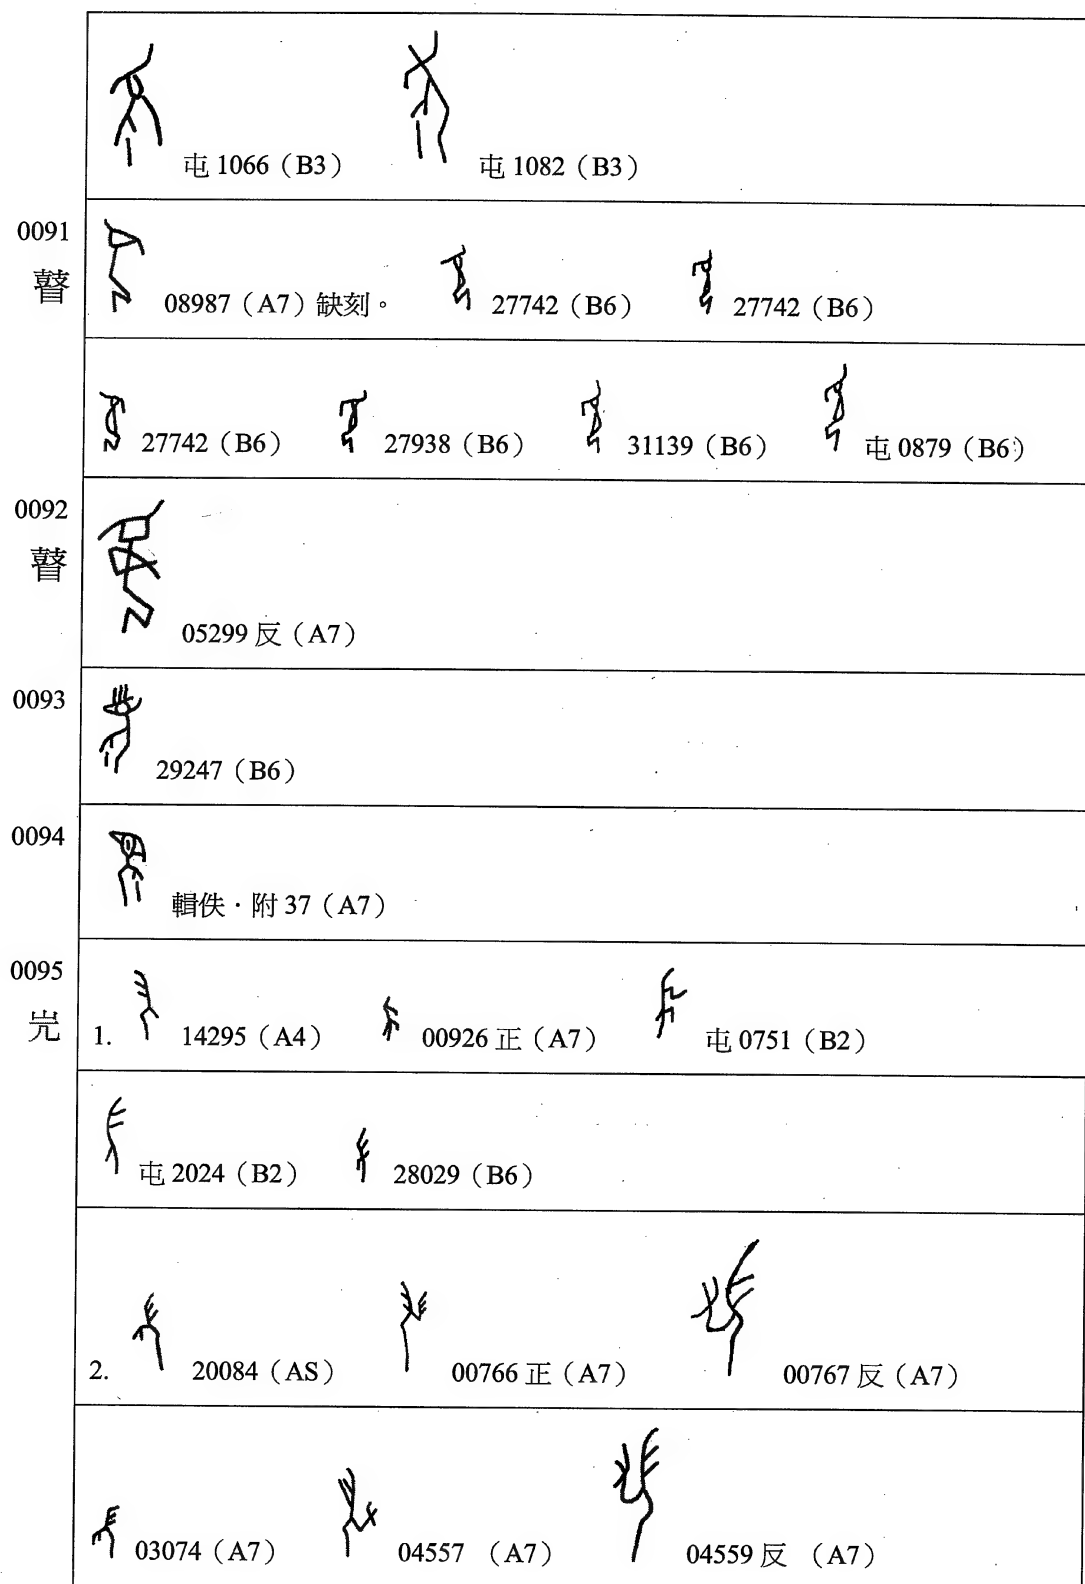 屯 1066（B3） 屯 1082（B3）
0091
瞽
08987（A7）缺刻。 27742（B6） 27742（B6）
27742（B6） 27938（B6） 31139（B6） 屯 0879（B6）
0092
瞽
05299 反（A7）
0093
29247（B6）
0094
輯佚·附 37（A7）
0095
岂
1. 14295（A4） 00926 正（A7） 屯 0751（B2）
屯 2024（B2） 28029（B6）
2. 20084（AS） 00766 正（A7） 00767 反（A7）
03074（A7） 04557 （A7） 04559 反 （A7）